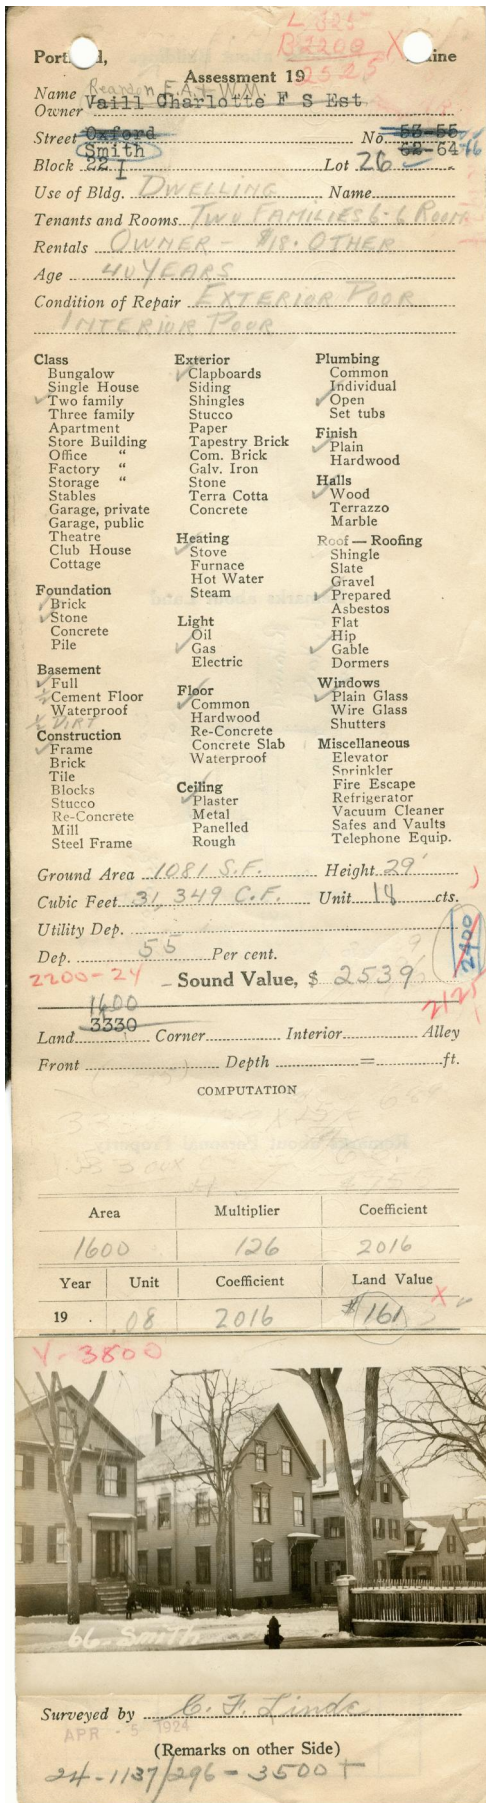 L 325
B 2200 X
2525
Portland, Maine
Assessment 19
Reardon E.A. + W.M.
Name Vaill Charlotte F S Est
Owner
Street Oxford No. 53-55
Smith 62-64 66
Block 22 I Lot 26
Use of Bldg. DWELLING Name
Tenants and Rooms TWO FAMILIES 6-6 ROOM
Rentals OWNER - $18. OTHER
Age 40 YEARS
Condition of Repair EXTERIOR POOR
INTERIOR POOR
Class
Bungalow
Single House
Two family
Three family
Apartment
Store Building
Office "
Factory "
Storage "
Stables
Garage, private
Garage, public
Theatre
Club House
Cottage
Foundation
Brick
Stone
Concrete
Pile
Basement
Full
½ Cement Floor
Waterproof
½ DIRT
Construction
Frame
Brick
Tile
Blocks
Stucco
Re-Concrete
Mill
Steel Frame
Exterior
Clapboards
Siding
Shingles
Stucco
Paper
Tapestry Brick
Com. Brick
Galv. Iron
Stone
Terra Cotta
Concrete
Heating
Stove
Furnace
Hot Water
Steam
Light
Oil
Gas
Electric
Floor
Common
Hardwood
Re-Concrete
Concrete Slab
Waterproof
Ceiling
Plaster
Metal
Panelled
Rough
Plumbing
Common
Individual
Open
Set tubs
Finish
Plain
Hardwood
Halls
Wood
Terrazzo
Marble
Roof — Roofing
Shingle
Slate
Gravel
Prepared
Asbestos
Flat
Hip
Gable
Dormers
Windows
Plain Glass
Wire Glass
Shutters
Miscellaneous
Elevator
Sprinkler
Fire Escape
Refrigerator
Vacuum Cleaner
Safes and Vaults
Telephone Equip.
Ground Area 1081 S.F. Height 29'
Cubic Feet 31,349 C.F. Unit 18 cts.
Utility Dep.
Dep. 55 Per cent. 2400
2200-24 - Sound Value, $ 2539
1600 2125
3330
Land Corner Interior Alley
Front Depth = ft.
COMPUTATION
Area Multiplier Coefficient
1600 126 2016
Year Unit Coefficient Land Value
19 . .08 2016 $161 X
V-3800
66-Smith
Surveyed by C. F. Linde
APR - 5 1924
(Remarks on other Side)
24-1137/296-3500+